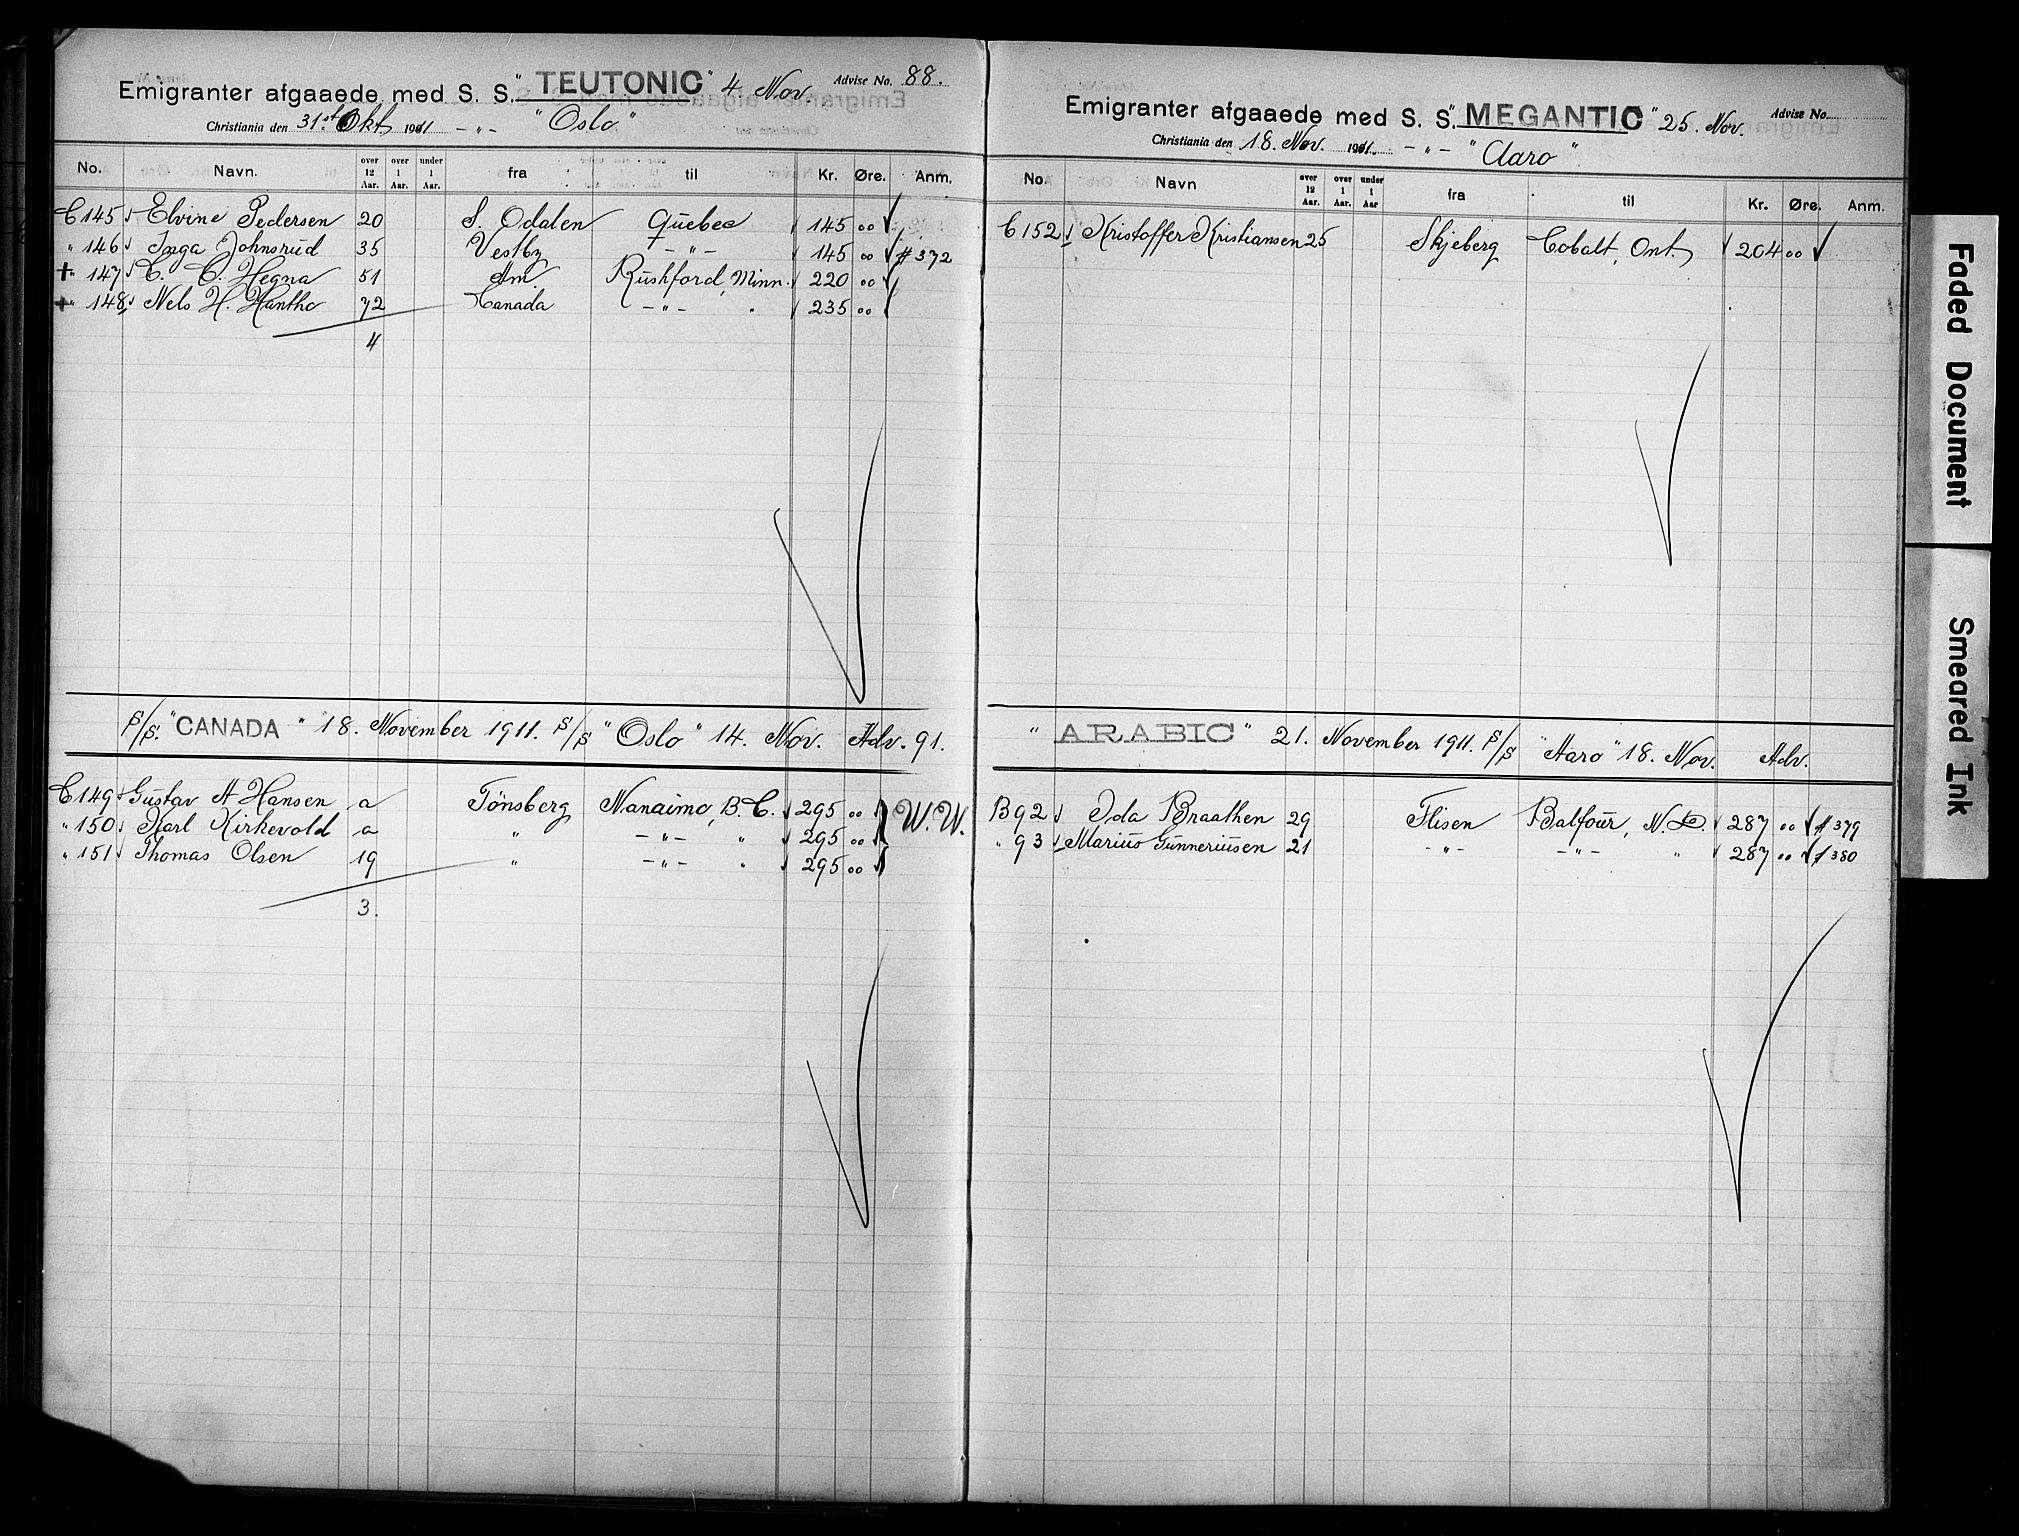 Emigranter afgaaede med S. S. "TEUTONIC" 4. Nov Advise No. 88.
Christiania den 31st Okt 1911 - " - "Oslo"
No. Navn. over 12 Aar. over 1 Aar. under 1 Aar. fra til Kr. Øre. Anm.
C 145 Elvine Pedersen 20 S. Odalen Quebec 145 00
" 146 Inga Johnsrud 35 Vestby - " - 145 00 # 372
+ " 147 C. C. Hegna 51 Am. Rushford, Minn. 220 00
+ " 148 Nels H. 72 Canada - " - " 235 00
4
S/S. "CANADA" 18. November 1911. S/S "Oslo" 14. Nov. Adv. 91.
C 149 Gustav A Hansen a Tönsberg Nanaimo, B. C. 295 00 W. W.
" 150 Karl Kirkevold a " - " - " 295 00
" 151 Thomas Olsen 19 " - " - " 295 00
3.
Emigranter afgaaede med S. S. "MEGANTIC" 25. Nov. Advise No.
Christiania den 18. Nov. 1911. - " - "Aaro"
No. Navn over 12 Aar. over 1 Aar. under 1 Aar fra til Kr. Øre. Anm.
C 152 Kristoffer Kristiansen 25 Skjeberg Cobalt, Ont. 204 00
"ARABIC" 21. November 1911. S/S "Aaro" 18. Nov. Adv.
B 92 Oda Braathen 29 Flisen Balfour, N. D. 287 00 # 379
" 93 Marius Gunneriusen 21 - " - - " - " 287 00 # 380
Faded Document
Smeared Ink